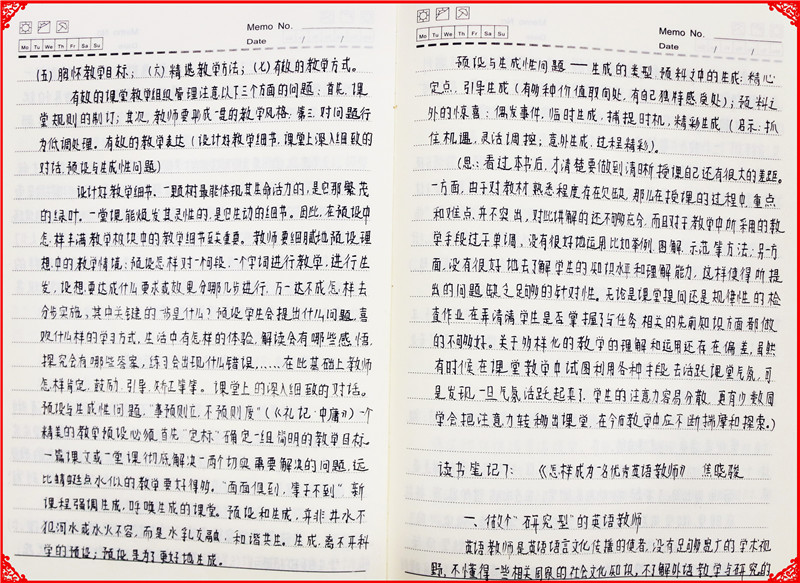 Memo No.
Mo Tu We Th Fr Sa Su
Date / /
(五)胸怀教学目标;(六)精选教学方法;(七)有效的教学方式。
有效的课堂教学组织管理注意以下三个方面的问题:首先,课
堂规则的制订;其次,教师要形成一定的教学风格;第三,对问题行
为低调处理。有效的教学表达(设计好教学细节,课堂上深入细致的
对话,预设与生成性问题)
设计好教学细节。一颗树最能体现其生命活力的,是它那繁花
的绿叶。一堂课能焕发其灵性的,是它生动的细节。因此,在预设中
怎样丰满教学板块中的教学细节至关重要。教师要细腻地预设理
想中的教学情境:预设怎样对一个句段,一个字词进行教学,进行生
发,设想要达成什么要求或效果,分哪几步进行,万一达不成怎样去
分步实施,其中关键的一步是什么?预设学生会提出什么问题,喜
欢什么样的学习方式,生活中有怎样的体验,解读会有哪些感悟,
探究会有哪些答案,练习会出现什么错误,……在此基础上教师
怎样肯定,鼓励,引导,矫正等等。课堂上的深入细致的对话。
预设与生成性问题,“事预则立,不预则废”(《礼记·中庸》)一个
精美的教学预设必须首先“定标”确定一组简明的教学目标。
一篇课文或一堂课彻底解决一两个切实需要解决的问题,远
比蜻蜓点水似的教学要好得多。“面面俱到,等于不到”。新
课程强调生成,呼唤生成的课堂。预设和生成,并非井水不
犯河水或水火不容,而是水乳交融,和谐共生。生成,离不开科
学的预设;预设是为了更好地生成。
Memo No.
Mo Tu We Th Fr Sa Su
Date / /
预设与生成性问题——生成的类型,预料之中的生成:精心
定点,引导生成(有多种价值取向处,有自己独特感受处);预料之
外的惊喜:偶发事件,临时生成,捕捉时机,精彩生成(启示:抓
住机遇,灵活调控;意外生成,过程精彩)。
(思:看过本书后,才清楚要做到清晰授课自己还有很大的差距。
一方面,由于对教材熟悉程度存在欠缺,那么在授课的过程中,重点
和难点并不突出,对此讲解的还不够充分,而且对于教学中所采用的教
学手段过于单调,没有很好地运用比如举例,图解,示范等方法;另一方
面,没有很好地去了解学生的知识水平和理解能力,这样使得所提
出的问题缺乏足够的针对性。无论是课堂提问还是规律性的检
查作业在弄清满学生是否掌握了与任务相关的先前知识方面都做
的不够好。关于多样化的教学的理解和运用还存在偏差,虽然
有时候在课堂教学中试图利用各种手段去活跃课堂气氛,可
是发现,一旦气氛活跃起来了,学生的注意力容易分散,更有少数同
学会把注意力转移出课堂,在今后教学中应不断揣摩和探索。)
读书笔记7: 《怎样成为一名优秀英语教师》 焦晓骏
一、做个“研究型”的英语教师
英语教师是英语语言文化传播的使者,没有足够宽广的学术视
野,不懂得一些相关国家的社会文化知识,不了解外语教学与研究的